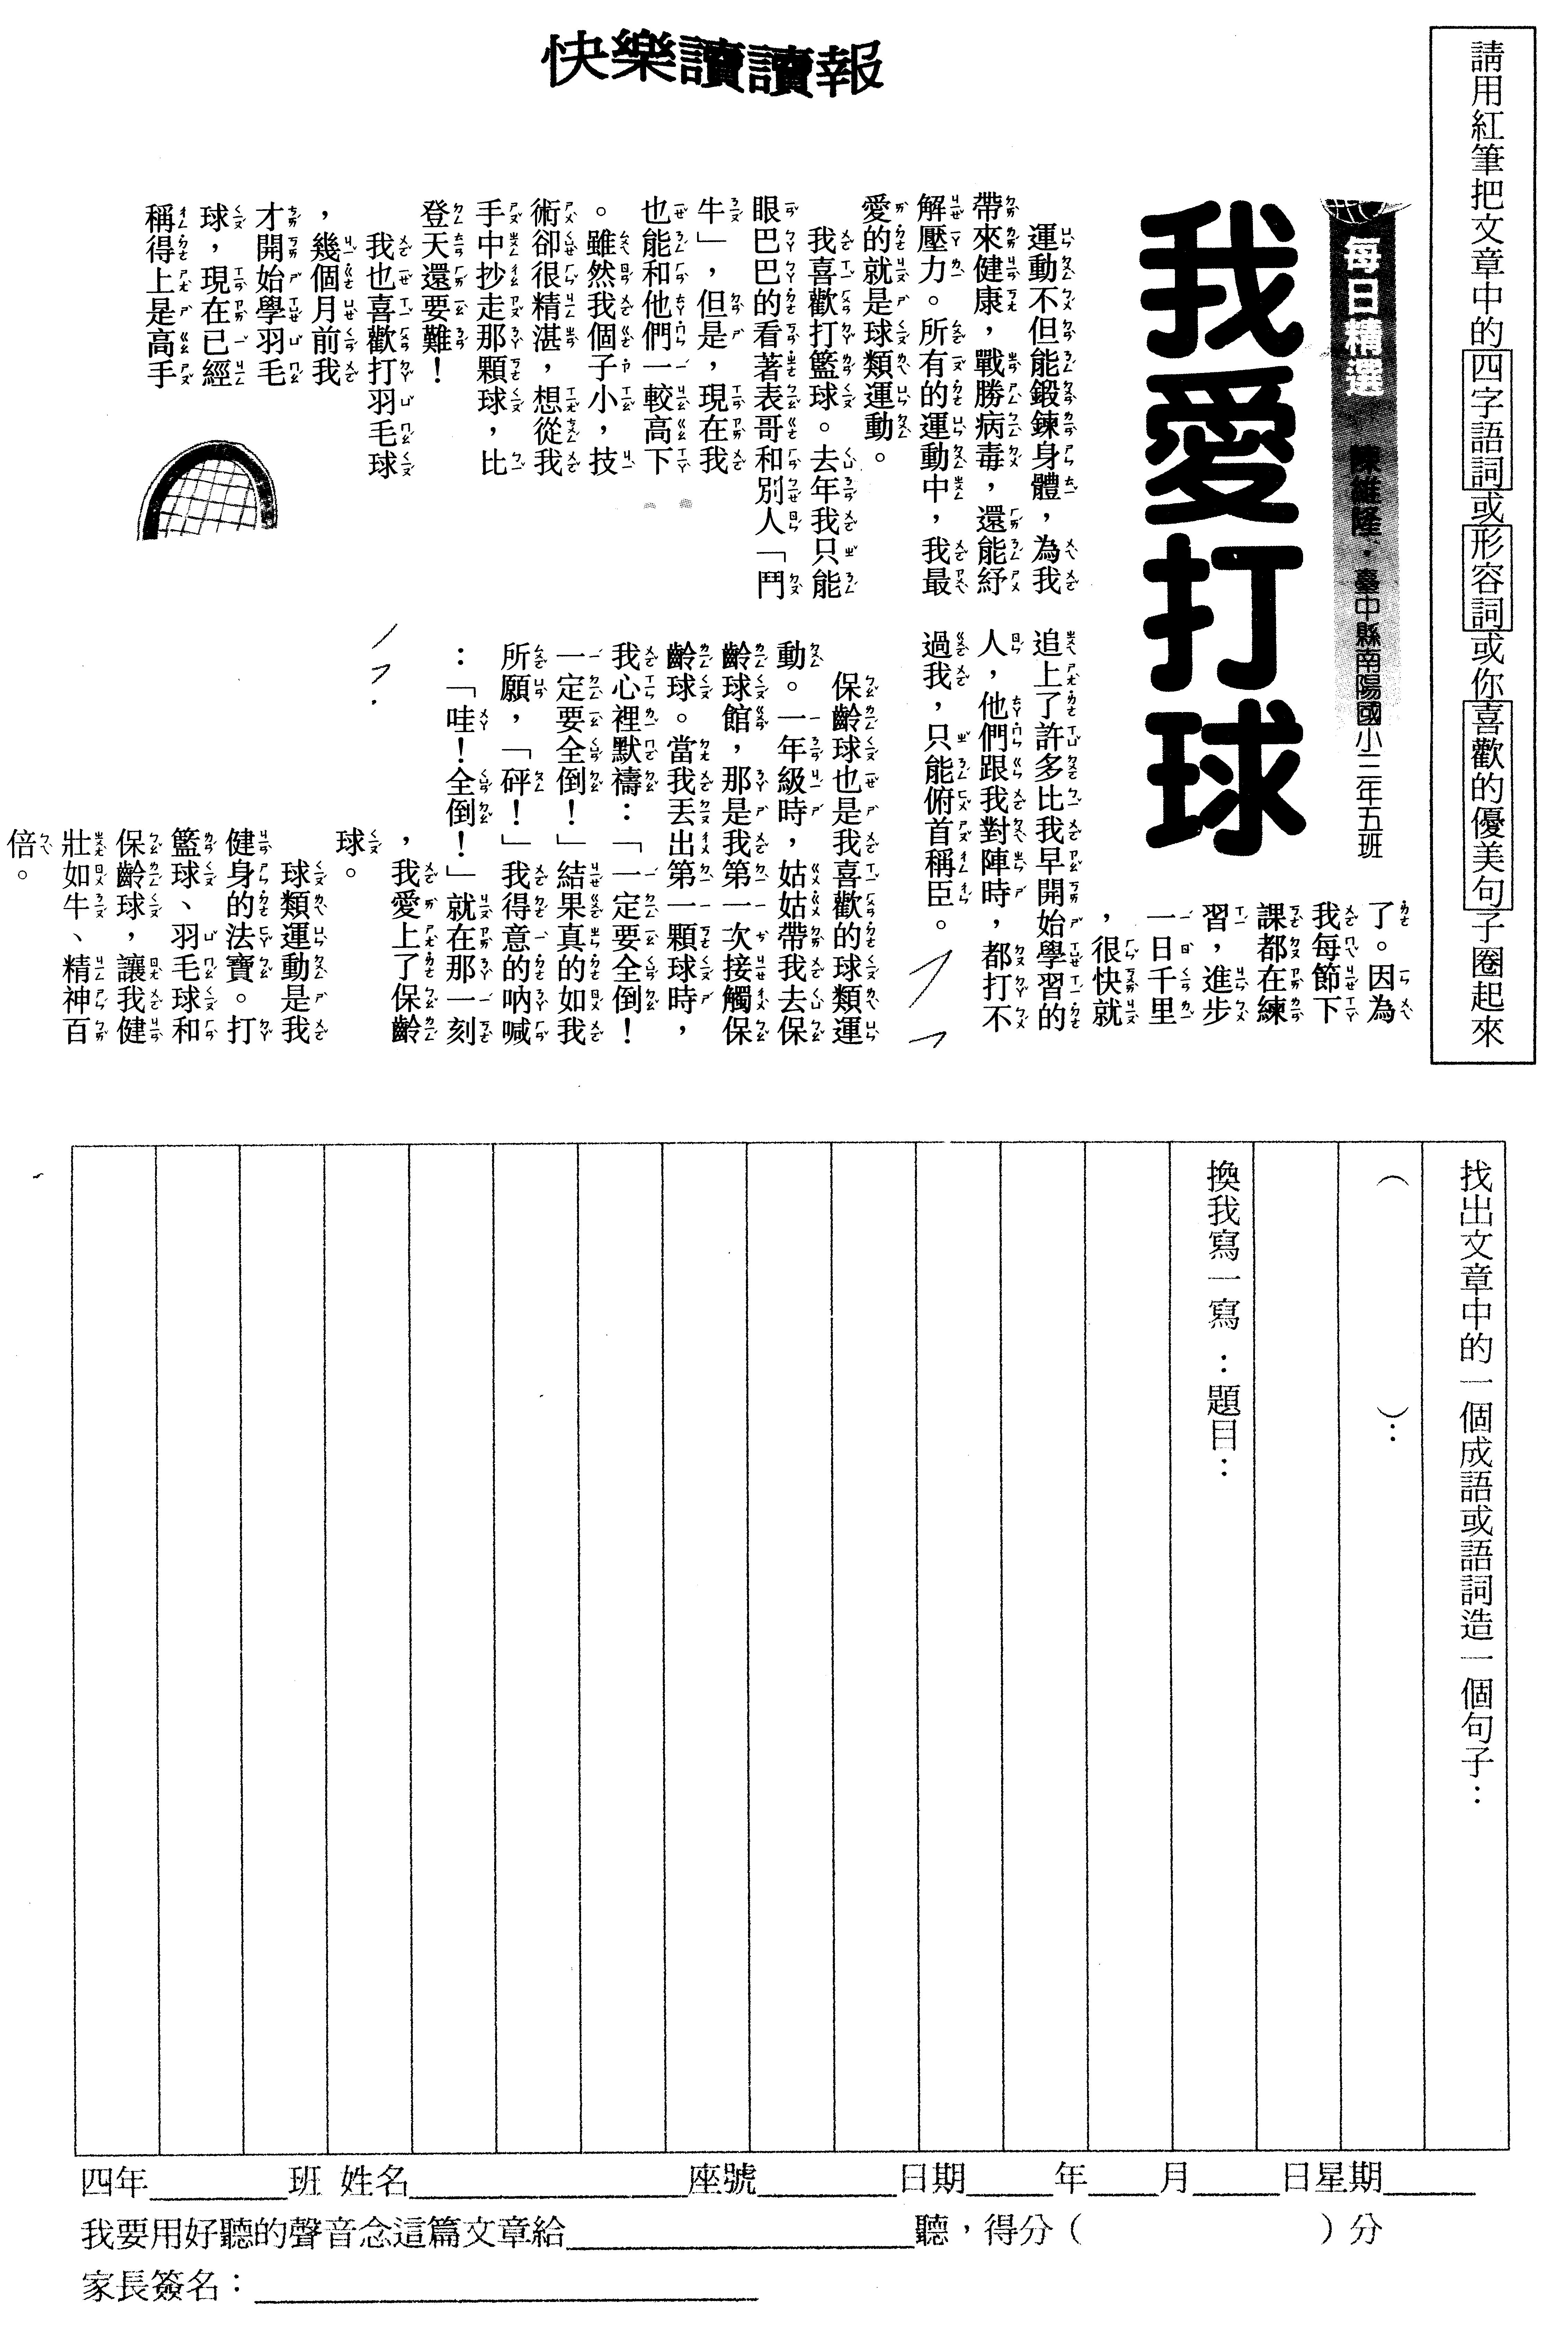 快樂讀讀報
請用紅筆把文章中的四字語詞或形容詞或你喜歡的優美句子圈起來
每日精選
陳維隆・臺中縣南陽國小二年五班
我愛打球
運動不但能鍛鍊身體，為我
帶來健康，戰勝病毒，還能紓
解壓力。所有的運動中，我最
愛的就是球類運動。
我喜歡打籃球。去年我只能
眼巴巴的看著表哥和別人「鬥
牛」，但是，現在我
也能和他們一較高下
。雖然我個子小，技
術卻很精湛，想從我
手中抄走那顆球，比
登天還要難！
我也喜歡打羽毛球
，幾個月前我
才開始學羽毛
球，現在已經
稱得上是高手
了。因為
我每節下
課都在練
習，進步
一日千里
，很快就
追上了許多比我早開始學習的
人，他們跟我對陣時，都打不
過我，只能俯首稱臣。
保齡球也是我喜歡的球類運
動。一年級時，姑姑帶我去保
齡球館，那是我第一次接觸保
齡球。當我丟出第一顆球時，
我心裡默禱：「一定要全倒！
一定要全倒！」結果真的如我
所願，「砰！」我得意的吶喊
：「哇！全倒！」就在那一刻
，我愛上了保齡
球。
球類運動是我
健身的法寶。打
籃球、羽毛球和
保齡球，讓我健
壯如牛、精神百
倍。
找出文章中的一個成語或語詞造一個句子：
（　　　）：
換我寫一寫：題目：
四年____班 姓名________座號____日期____年____月____日星期____
我要用好聽的聲音念這篇文章給________聽，得分（　　　）分
家長簽名：________